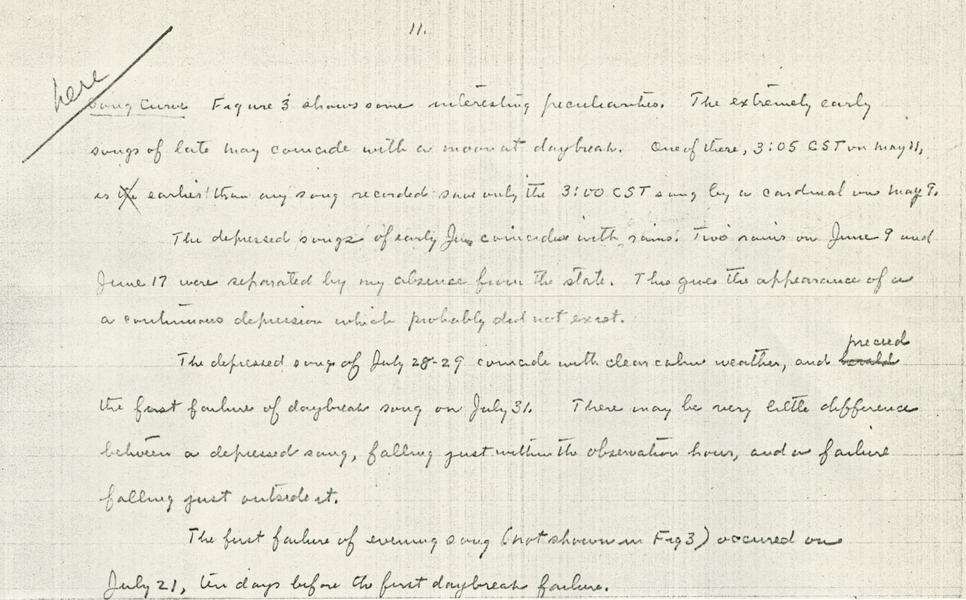 11.
here
Song Curve Figure 3 shows some interesting peculiarities. The extremely early
songs of late may coincide with a moon at daybreak. One of these, 3:05 CST on May 11,
is the earlier than any song recorded save only the 3:00 CST song by a cardinal on May 9.
The depressed songs of early June coincides with rains. Two rains on June 9 and
June 17 were separated by my absence from the state. This gives the appearance of a
a continuous depression which probably did not exist.
precced
The depressed song of July 28-29 coincide with clear calm weather, and herald
the first failure of daybreak song on July 31. There may be very little difference
between a depressed song, falling just within the observation hour, and a failure
falling just outside it.
The first failure of evening song (not shown in Fig 3) occured on
July 21, ten days before the first daybreak failure.